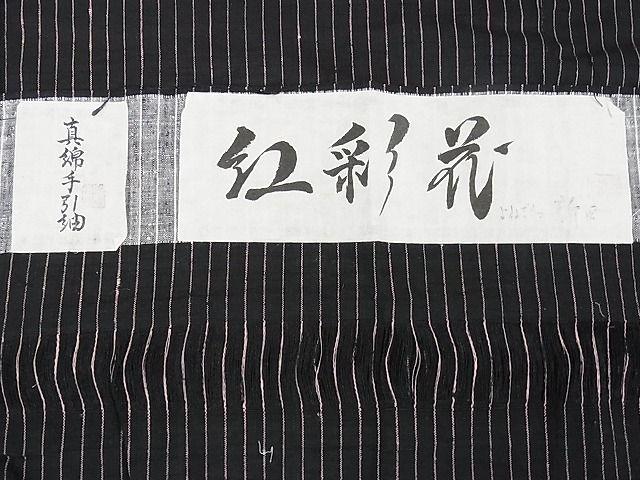 真綿手引紬
紅彩花